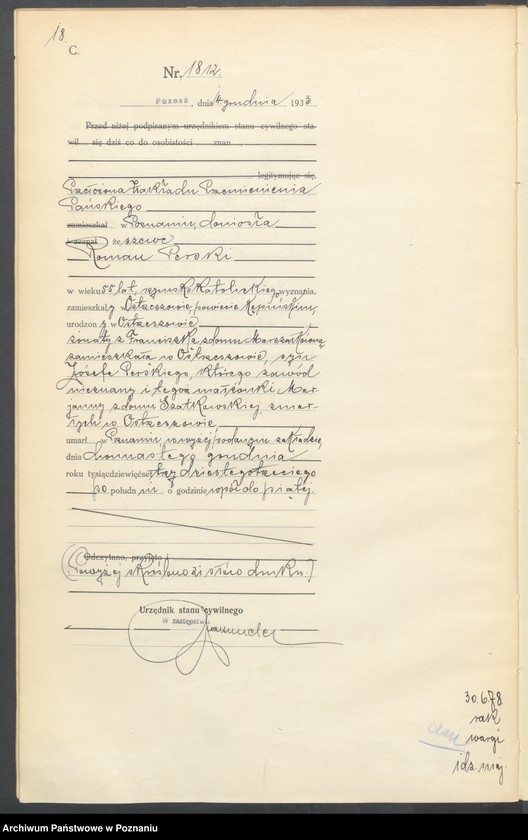 18.
C.
Nr. 1812.
Poznań, dnia 14 grudnia 1933
Przed niżej podpisanym urzędnikiem stanu cywilnego sta-
wił się dziś co do osobistości znan
legitymując się
Przełożona Zakładu Przemienienia
Pańskiego
zamieszkał w Poznaniu, doniosła
i zeznał że szewc
Roman Perski
w wieku 55 lat, rzymsko katolickiego wyznania,
zamieszkały w Ostrzeszowie, powiecie Kępińskim,
urodzony w Ostrzeszowie
żonaty z Franciszką z domu
zamieszkała w Ostrzeszowie, syn
Józefa Perskiego, którego zawód
nieznany i tegoż małżonki Mar-
janny z domu Szatkowskiej zmar-
łych w Ostrzeszowie
umarł w Poznaniu, w wyżej podanym zakładzie,
dnia dwunastego grudnia
roku tysiącdziewięćset trzydziestego trzeciego
po południu o godzinie wpół do piątej.
Odczytano, przyjęto i
(Powyżej skreślono 21 słów druku.)
Urzędnik stanu cywilnego
W zastępstwie
30.6.78
rak
wargi
Archiwum Państwowe w Poznaniu